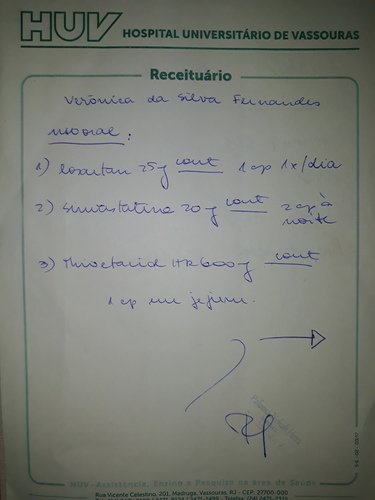 HUV HOSPITAL UNIVERSITÁRIO DE VASSOURAS
Receituário
Verônica da Silva Fernandes
uso oral:
1) Losartan 25g cont 1 cp 1x/dia
2) Sinvastatina 20g cont 2 cp à
noite
3) Thioctacid HR 600g cont
1 cp em jejum.
HUV - Assistência, Ensino e Pesquisa na área de Saúde
Rua Vicente Celestino, 201, Madruga, Vassouras, RJ - CEP: 27700-000